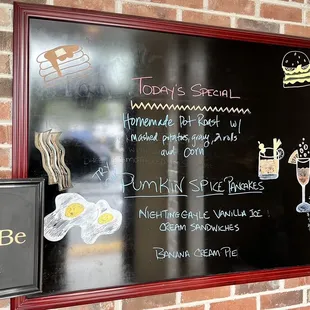 Today's Special
Homemade Pot Roast w/
mashed potatoes, gravy, 2 rolls
and corn
TRY
Pumkin Spice Pancakes
Nightingayle Vanilla Ice
Cream Sandwiches
Banana Cream Pie
Be